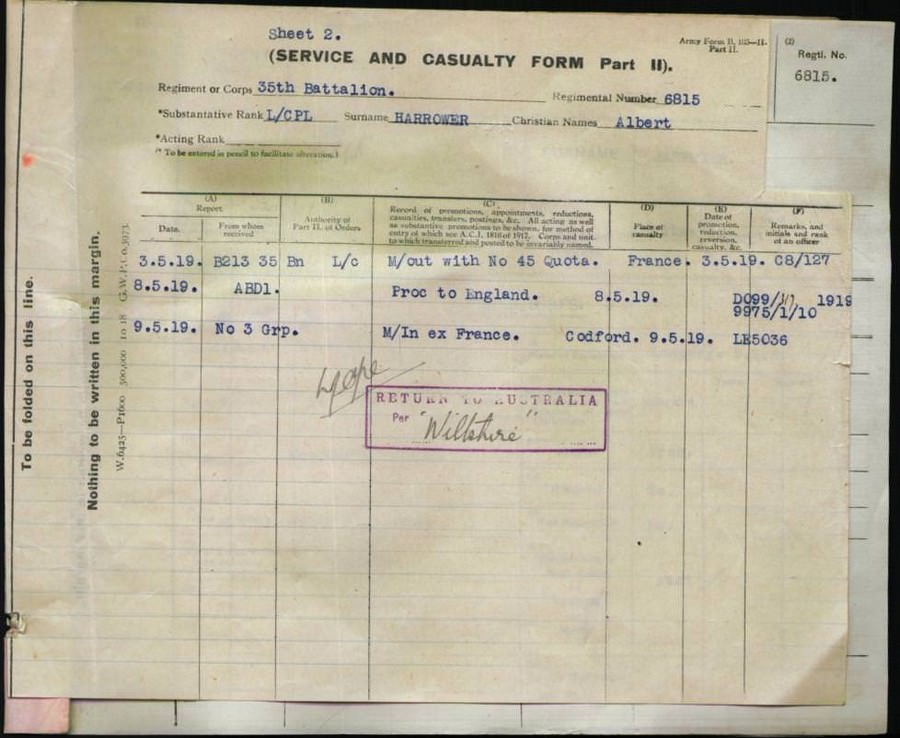 Sheet 2.
Army Form B. 103—II.
Part II.
(SERVICE AND CASUALTY FORM Part II).
(2)
Regtl. No.
6815.
Regiment or Corps 35th Battalion. Regimental Number 6815
*Substantative Rank L/CPL Surname HARROWER Christian Names Albert
*Acting Rank
(* To be entered in pencil to facilitate alteration.)
(A) (B) (C) (D) (E) (F)
Report
Date. From whom received
Authority of Part II. of Orders
Record of promotions, appointments, reductions,
casualties, transfers, postings, &c. All acting as well
as substantive promotions to be shown, for method of
entry of which see A.C.I. 1816 of 1917. Corps and unit
to which transferred and posted to be invariably named.
Place of casualty
Date of promotion, reduction, reversion, casualty, &c.
Remarks, and initials and rank of an officer
3.5.19. B213 35 Bn L/c M/out with No 45 Quota. France. 3.5.19. C8/127
8.5.19. ABD1. Proc to England. 8.5.19. DO99/ 1919
9975/1/10
9.5.19. No 3 Grp. M/In ex France. Codford. 9.5.19. LE5036
RETURN TO AUSTRALIA
Per "Wiltshire"
To be folded on this line.
Nothing to be written in this margin.